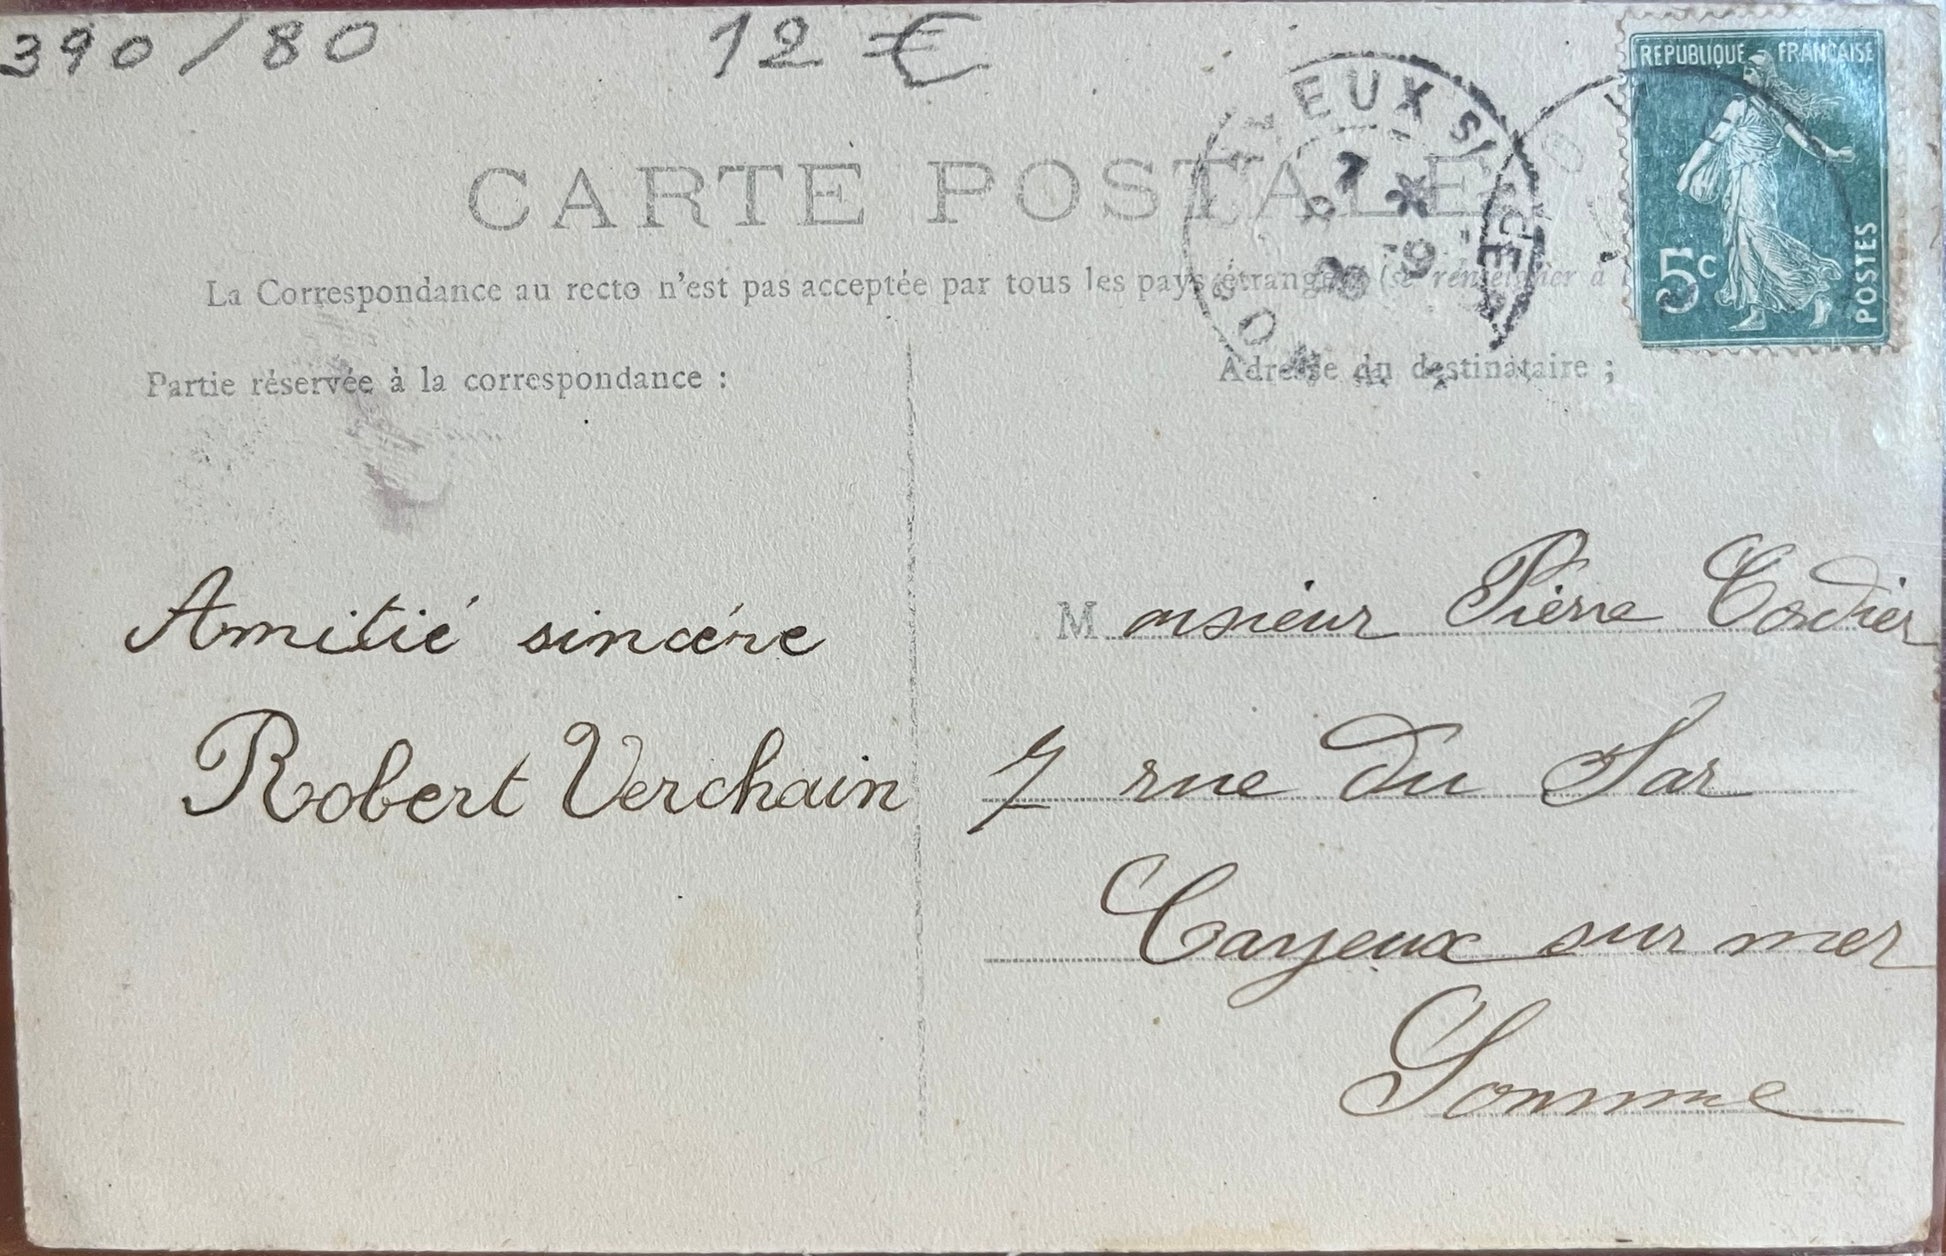 390 / 80
12 €
REPUBLIQUE FRANCAISE
5c
POSTES
CARTE POSTALE
EUX S
La Correspondance au recto n'est pas acceptée par tous les pays étrangers (se renseigner à l
Partie réservée à la correspondance :
Adresse du destinataire ;
Amitié sincére
Robert Verchain
Monsieur Pierre Cordier
7 rue du Sar
Cayeux sur mer
Somme